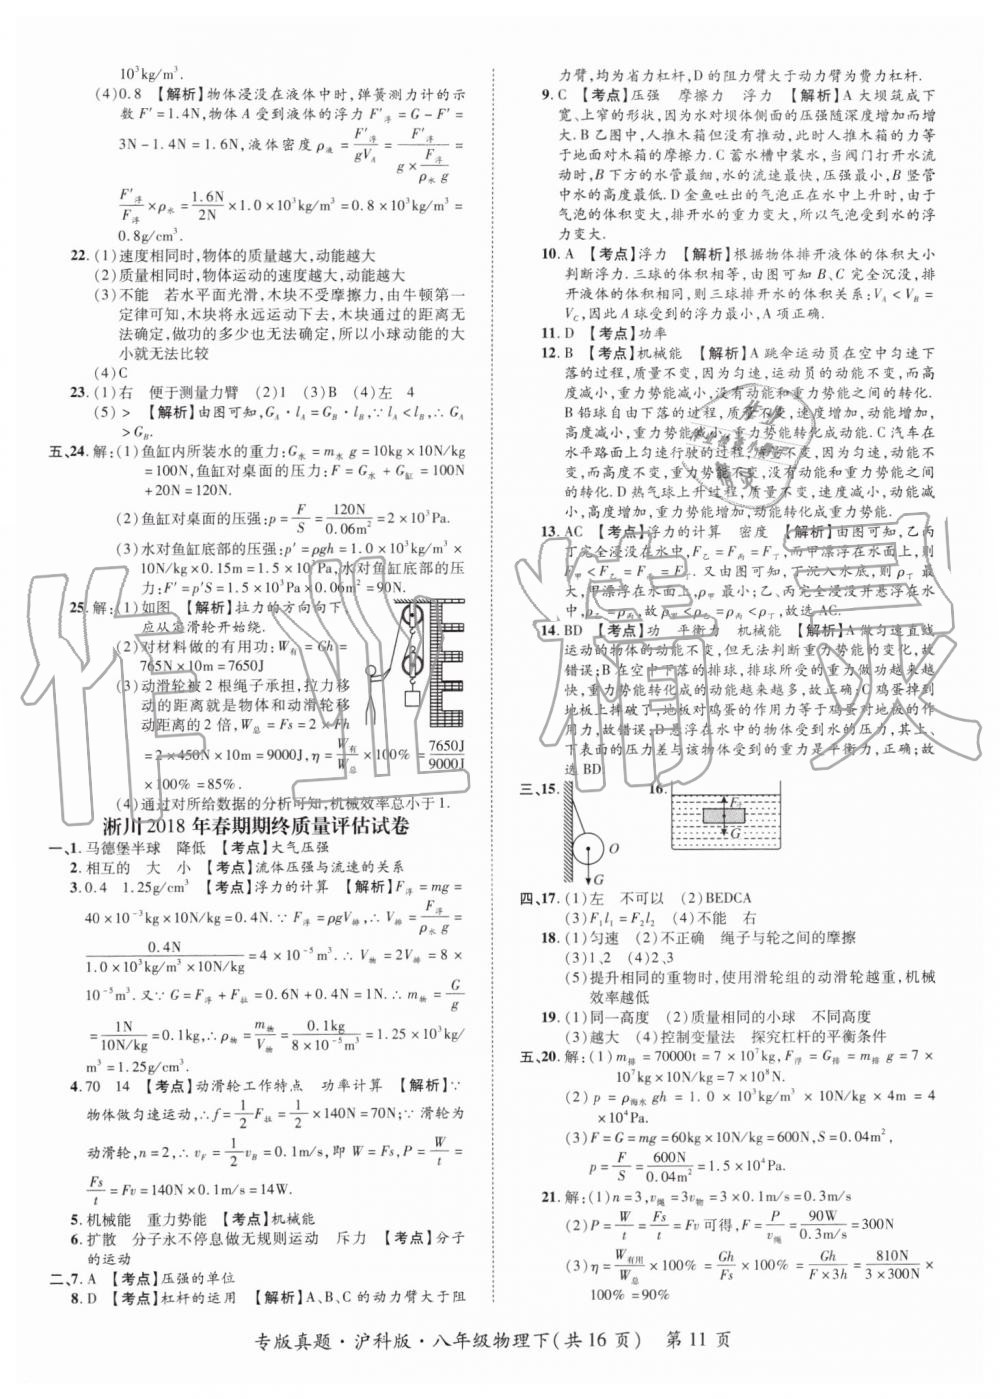 10³kg/m³.
(4)0.8 【解析】物体浸没在液体中时,弹簧测力计的示
数 F′=1.4N,物体 A 受到液体的浮力 F′浮=G-F′=
3N-1.4N=1.6N,液体密度 ρ液=F′浮/gVA=F′浮/(g×F浮/ρ水g)=
F′浮/F浮×ρ水=1.6N/2N×1.0×10³kg/m³=0.8×10³kg/m³=
0.8g/cm³.
22.(1)速度相同时,物体的质量越大,动能越大
(2)质量相同时,物体运动的速度越大,动能越大
(3)不能 若水平面光滑,木块不受摩擦力,由牛顿第一
定律可知,木块将永远运动下去,木块通过的距离无
法确定,做功的多少也无法确定,所以小球动能的大
小就无法比较
(4)C
23.(1)右 便于测量力臂 (2)1 (3)B (4)左 4
(5)> 【解析】由图可知,GA·lA=GB·lB,∵lA<lB,∴GA
>GB.
五、24.解:(1)鱼缸内所装水的重力:G水=m水g=10kg×10N/kg
=100N,鱼缸对桌面的压力:F=G水+G缸=100N
+20N=120N.
(2)鱼缸对桌面的压强:p=F/S=120N/0.06m²=2×10³Pa.
(3)水对鱼缸底部的压强:p′=ρgh=1.0×10³kg/m³×
10N/kg×0.15m=1.5×10³Pa,水对鱼缸底部的压
力:F′=p′S=1.5×10³Pa×0.06m²=90N.
25.解:(1)如图 【解析】拉力的方向向下,
应从定滑轮开始绕.
(2)对材料做的有用功:W有=Gh=
765N×10m=7650J
(3)动滑轮被2根绳子承担,拉力移
动的距离就是物体和动滑轮移
动距离的2倍,W总=Fs=2×Fh
=2×450N×10m=9000J,η=W有/W总×100%=7650J/9000J
×100%=85%.
(4)通过对所给数据的分析可知,机械效率总小于1.
淅川2018年春期期终质量评估试卷
一、1.马德堡半球 降低 【考点】大气压强
2.相互的 大 小 【考点】流体压强与流速的关系
3.0.4 1.25g/cm³ 【考点】浮力的计算 【解析】F浮=mg=
40×10⁻³kg×10N/kg=0.4N.∵F浮=ρgV排,∴V排=F浮/ρ水g=
0.4N/(1.0×10³kg/m³×10N/kg)=4×10⁻⁵m³.∴V物=2V排=8×
10⁻⁵m³.又∵G=F浮+F拉=0.6N+0.4N=1N.∴m物=G/g
=1N/10N/kg=0.1kg,∴ρ物=m物/V物=0.1kg/8×10⁻⁵m³=1.25×10³kg/
m³=1.25g/cm³.
4.70 14 【考点】动滑轮工作特点 功率计算 【解析】∵
物体做匀速运动,∴f=1/2F拉=1/2×140N=70N;∵滑轮为
动滑轮,n=2,∴vF=1/2vB=0.1m/s,即W=Fs,P=W/t=
Fs/t=Fv=140N×0.1m/s=14W.
5.机械能 重力势能 【考点】机械能
6.扩散 分子永不停息做无规则运动 斥力 【考点】分子
的运动
二、7.A 【考点】压强的单位
8.D 【考点】杠杆的运用 【解析】A、B、C的动力臂大于阻
力臂,均为省力杠杆,D的阻力臂大于动力臂为费力杠杆.
9.C 【考点】压强 摩擦力 浮力 【解析】A大坝筑成下
宽、上窄的形状,因为水对坝体侧面的压强随深度增加而增
大.B乙图中,人推木箱但没有推动,此时人推木箱的力等
于地面对木箱的摩擦力.C蓄水槽中装水,当阀门打开水流
动时,B下方的水管最细,水的流速最快,压强最小,B竖管
中水的高度最低.D金鱼吐出的气泡正在水中上升时,由于
气泡的体积变大,排开水的重力变大,所以气泡受到水的浮
力变大.
10.A 【考点】浮力 【解析】根据物体排开液体的体积大小
判断浮力.三球的体积相等,由图可知B、C完全沉没,排
开液体的体积相同,则三球排开水的体积关系:VA<VB=
VC,因此A球受到的浮力最小,A项正确.
11.D 【考点】功率
12.B 【考点】机械能 【解析】A跳伞运动员在空中匀速下
落的过程,质量不变,因为匀速,运动员的动能不变,高度
减小,重力势能减小,没有动能和重力势能之间的转化.
B铅球自由下落的过程,质量不变,速度增加,动能增加,
高度减小,重力势能减小,重力势能转化成动能.C汽车在
水平路面上匀速行驶的过程,质量不变,速度不变,动能不
变,而高度不变,重力势能不变,没有动能和重力势能之间
的转化.D热气球上升过程,质量不变,速度减小,动能减
小,高度增加,重力势能增加,动能转化成重力势能.
13.AC 【考点】浮力的计算 密度 【解析】由图可知,乙丙
丁完全浸没在水中,F乙=F丙=F丁,而甲漂浮在水面上,
则F甲<F乙=F丙=F丁.又由图可知,丁沉入水底,则ρ丁最
大,甲漂浮在水面上,ρ甲最小,乙、丙完全浸没并悬浮在水
中,ρ乙=ρ丙,故ρ甲<ρ乙=ρ丙<ρ丁,故选AC.
14.BD 【考点】功 平衡力 机械能 【解析】A做匀速直线
运动的物体动能不变,但无法判断重力势能的变化,故
错误;B在空中下落的排球,排球所受重力做功越来越
快,重力势能转化成的动能越来越多,故正确;C鸡蛋掉到
地板上摔破了,地板对鸡蛋的作用力等于鸡蛋对地板的作
用力,故错误;D悬浮在水中的物体受到水的压力,其上
下表面的压力差与该物体受到的重力是平衡力,正确.故
选BD
三、15. 16.
O
G
F浮
G
四、17.(1)左 不可以 (2)BEDCA
(3)F₁l₁=F₂l₂ (4)不能 右
18.(1)匀速 (2)不正确 绳子与轮之间的摩擦
(3)1、2 (4)2、3
(5)提升相同的重物时,使用滑轮组的动滑轮越重,机械
效率越低
19.(1)同一高度 (2)质量相同的小球 不同高度
(3)越大 (4)控制变量法 探究杠杆的平衡条件
五、20.解:(1)m排=70000t=7×10⁷kg,F浮=G排=m排g=7×
10⁷kg×10N/kg=7×10⁸N.
(2)p=ρ海水gh=1.0×10³kg/m³×10N/kg×4m=4
×10⁴Pa.
(3)F=G=mg=60kg×10N/kg=600N,S=0.04m²,
p=F/S=600N/0.04m²=1.5×10⁴Pa.
21.解:(1)n=3,v绳=3v物=3×0.1m/s=0.3m/s
(2)P=W/t=Fs/t=Fv可得,F=P/v绳=90W/0.3m/s=300N
(3)η=W有用/W总×100%=Gh/Fs×100%=Gh/F×3h=810N/3×300N×
100%=90%
专版真题·沪科版·八年级物理下(共16页) 第11页
作业精灵